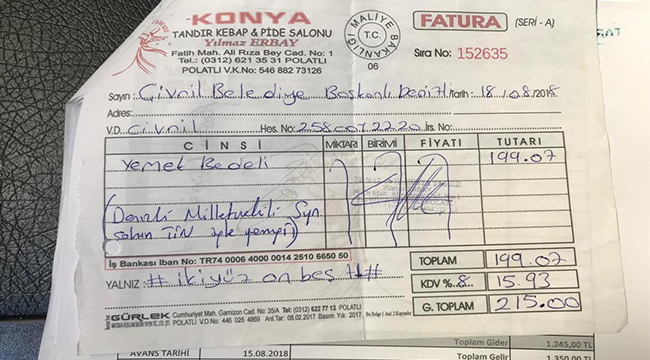 KONYA
TANDIR KEBAP & PİDE SALONU
Yılmaz ERBAY
Fatih Mah. Ali Rıza Bey Cad. No: 1
Tel.: (0312) 621 35 31 POLATLI
POLATLI V.K.No: 546 882 73126
MALİYE BAKANLIĞI
T.C.
06
FATURA (SERİ - A)
Sıra No: 152635
Sayın: Çivril Belediye Başkanlı Denizli Tarih: 18/08/2018
Adres:
V.D. Çivril Hes. No: 2580072220 İrs. No:
CİNSİ MİKTARI BİRİMİ FİYATI TUTARI
Yemek Bedeli 199.07
(Denizli Milletvekili Syn
Şahin TİN yemeği)
İş Bankası Iban No: TR74 0006 4000 0014 2510 6650 50
TOPLAM 199.07
YALNIZ: # iki yüz on beş tl #
KDV %.8.. 15.93
G. TOPLAM 215.00
GÜRLEK Cumhuriyet Mah. Garnizon Cad. No: 35/A Tel: (0312) 622 77 13 POLATLI
POLATLI V.D. No: 446 026 4869 Ant.Tar: 08.02.2017 Basım Yılı: 2017
Toplam Gider 1.345,00 TL
AVANS TARİHİ 15.08.2018 Toplam Gelir 1.350,00 TL